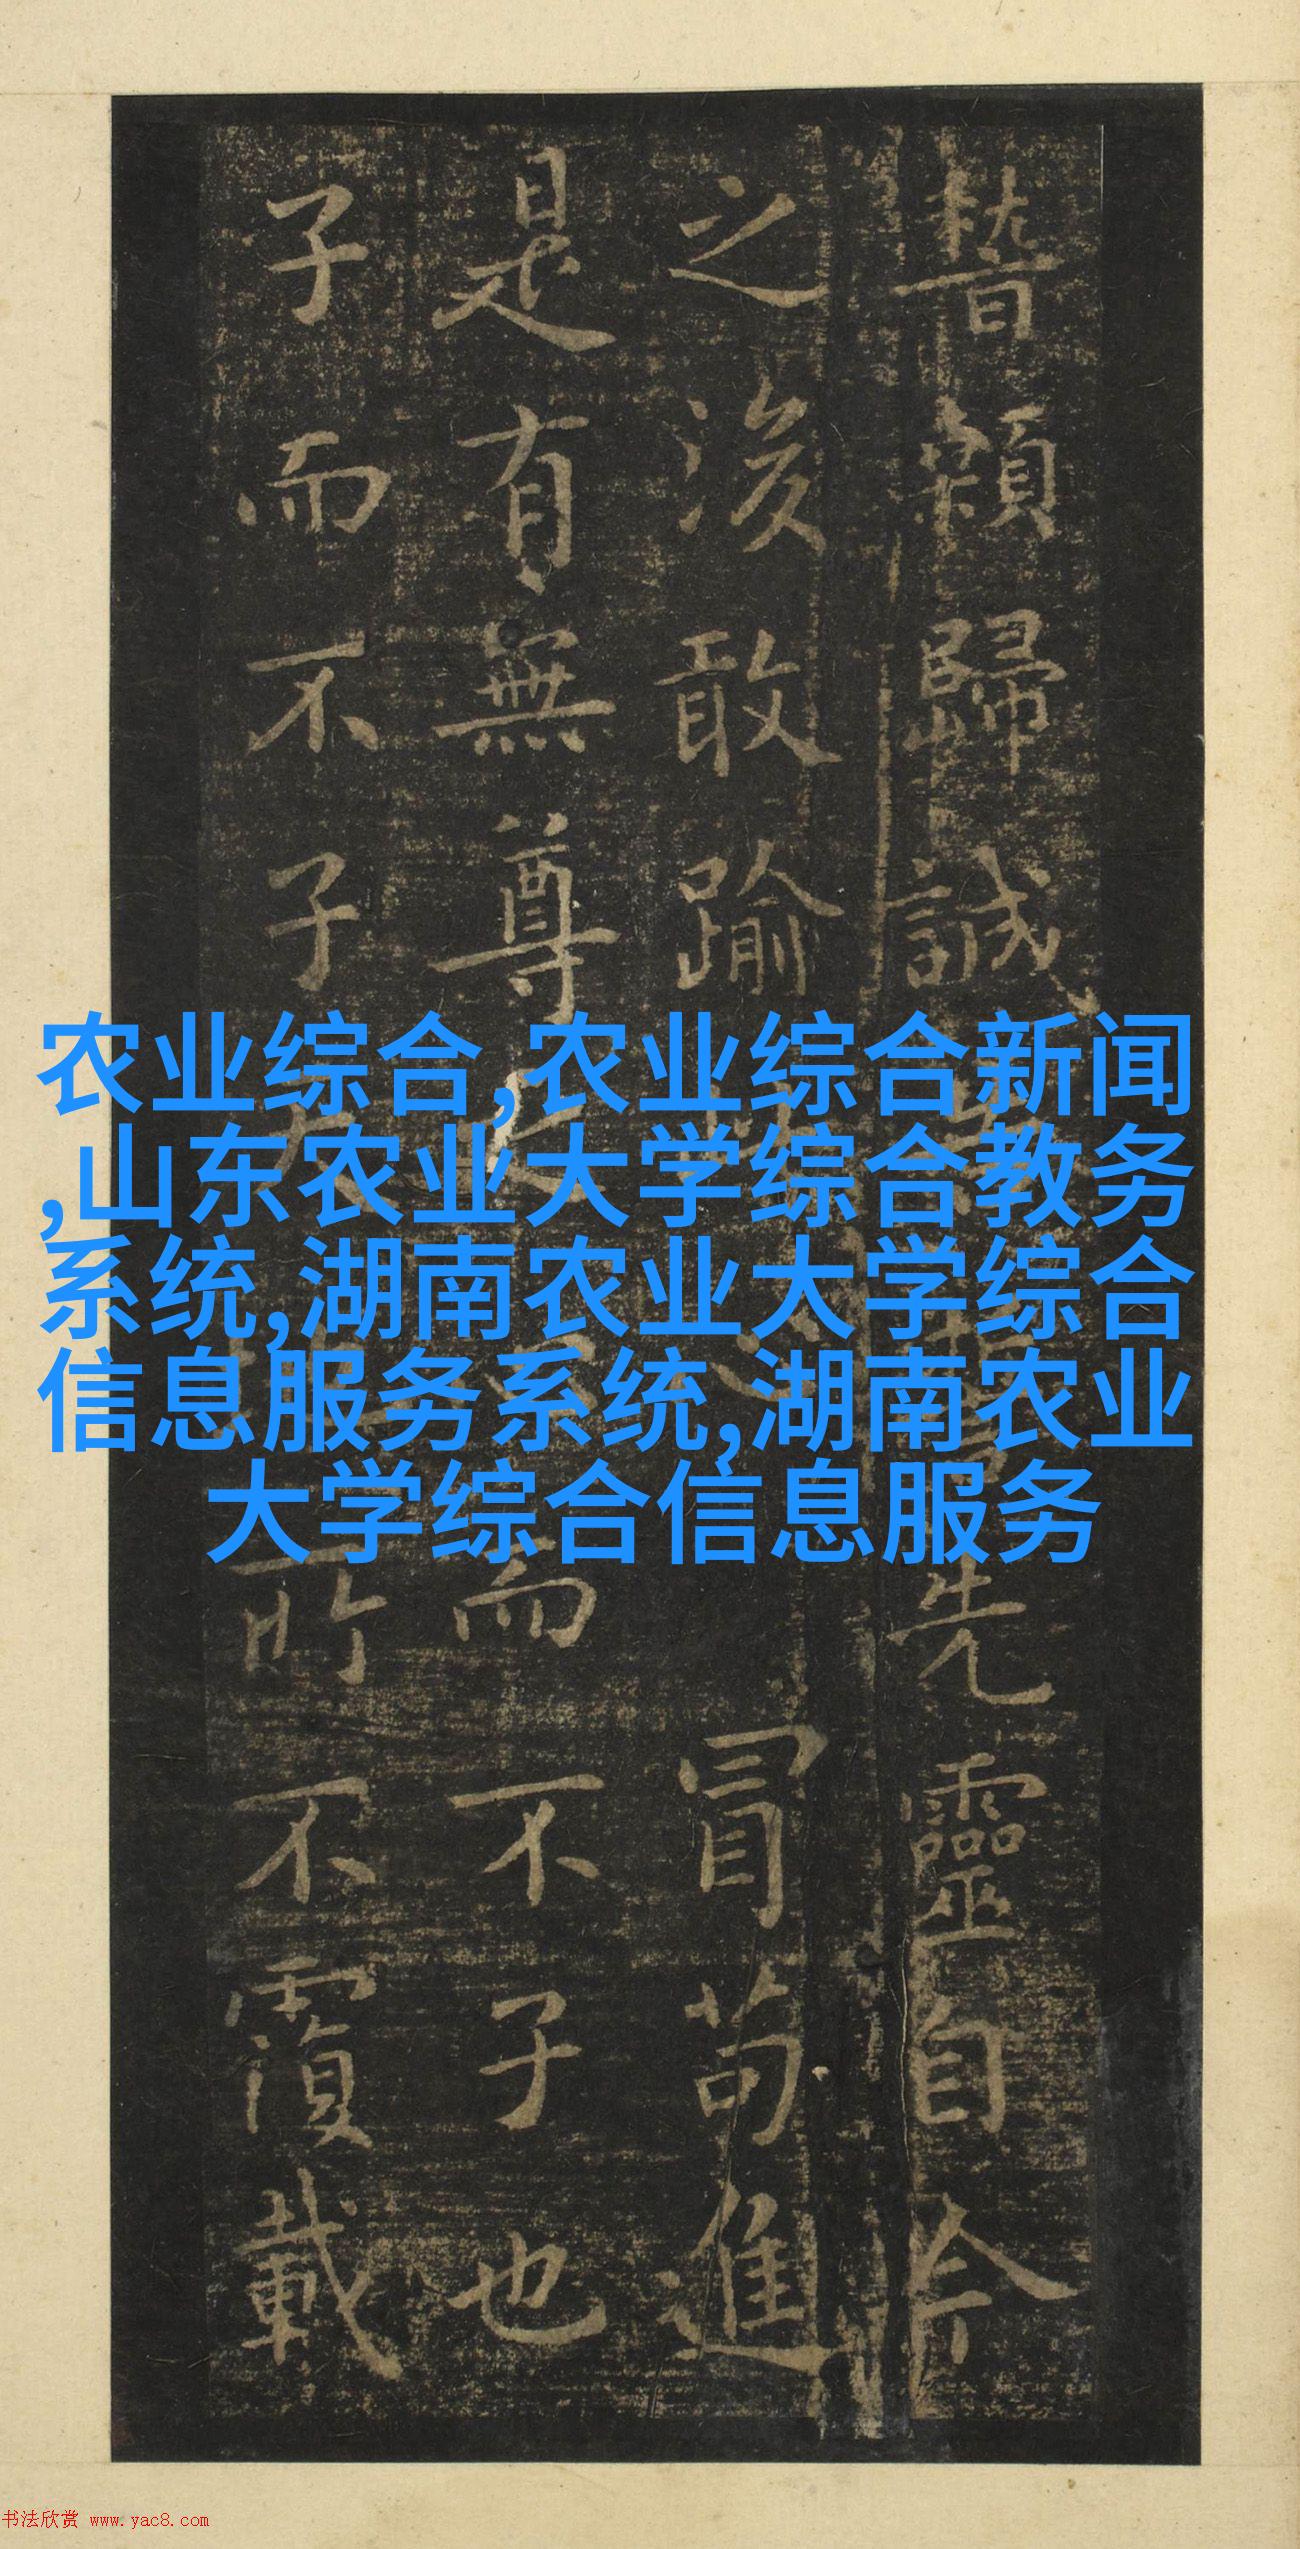 稽顙歸誠
先靈自今
之後敢踰
冒苟進
是有無尊
而不子也
子而不子
所不覆載
农业综合,农业综合新闻
,山东农业大学综合教务
系统,湖南农业大学综合
信息服务系统,湖南农业
大学综合信息服务
书法欣赏 www.yac8.com